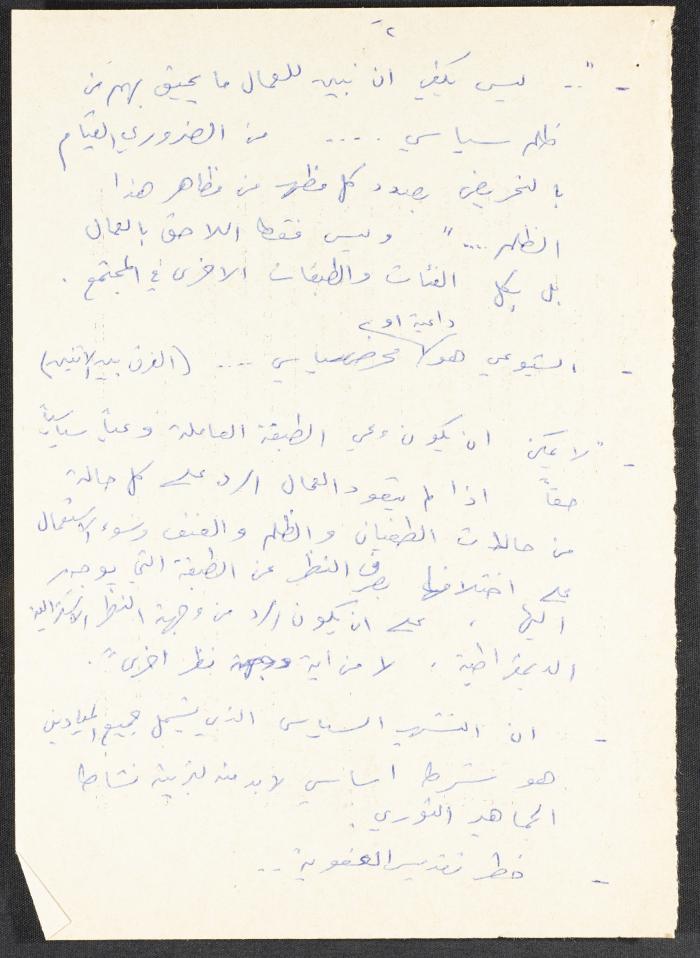 ٢ -
- ".. ليس يكفي ان نبين للعمال ما يحيق بهم من
ظلم سياسي ..... من الضروري القيام
بالتحريض بصدد كل مظهر من مظاهر هذا
الظلم ...." وليس فقط اللاحق بالعمال
بل بكل الفئات والطبقات الاخرى في المجتمع .
داعية او
- الشيوعي هو محرض سياسي .... (الفرق بين الاثنين)
- "لا يمكن ان يكون وعي الطبقة العاملة وعياً سياسياً
حقاً اذا لم يتعود العمال الرد على كل حالة
من حالات الطغيان والظلم والعنف وسوء الاستعمال
على اختلافها بصرف النظر عن الطبقة التي يوجه
اليها ، على ان يكون الرد من وجهة النظر الاشتراكية
الديمقراطية . لا من اية وجهة نظر اخرى".
- ان التشهير السياسي الذي يشمل جميع الميادين
هو شرط اساسي لابد منه لتربية نشاط
الجماهير الثوري .
- خطر تقديس العفوية ..